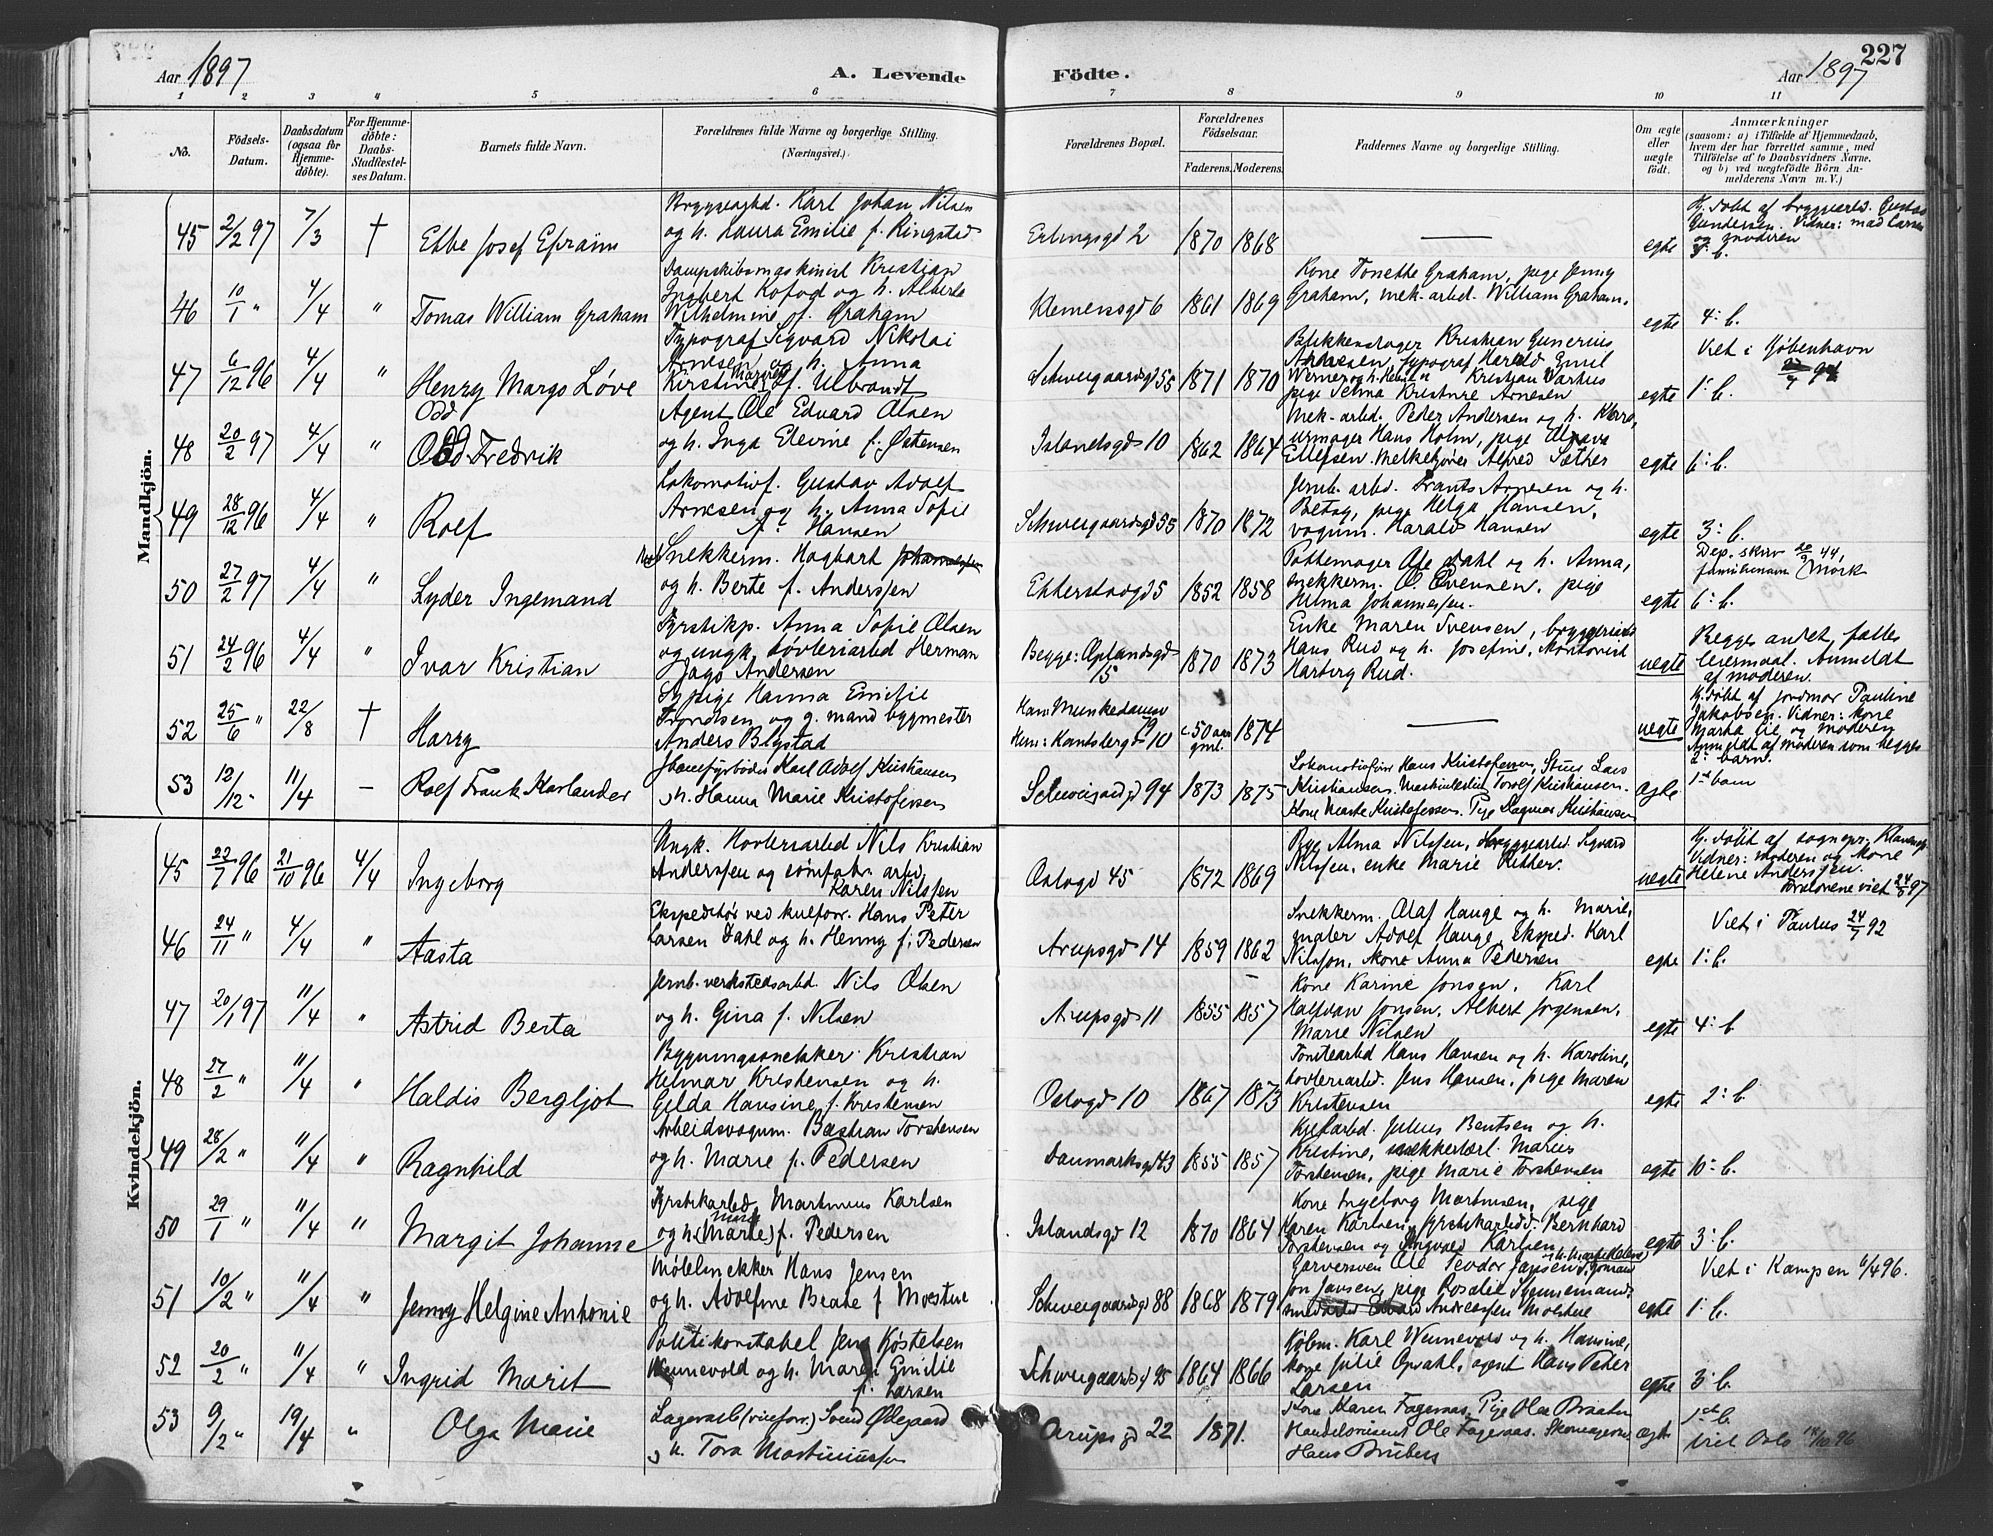 227
Aar 1897
A. Levende Födte.
Aar 1897
1 2 3 4 5 6 7 8 9 10 11
No.
Födsels-Datum.
Daabsdatum (ogsaa for Hjemme-døbte).
For Hjemme-døbte: Daabs-Stadfæstel-ses Datum.
Barnets fulde Navn.
Forældrenes fulde Navne og borgerlige Stilling. (Næringsvei.)
Forældrenes Bopæl.
Forældrenes Fødselsaar.
Faderens. Moderens.
Faddernes Navne og borgerlige Stilling.
Om ægte eller uægte født.
Anmærkninger
(saasom: a) i Tilfælde af Hjemmedaab,
hvem der har forrettet samme, med
Tilföielse af to Daabsvidners Navne.
og b) ved uægtefödte Börn An-
melderens Navn m. V.)
Mandkjön.
45 2/2 97 7/3 † Ebbe Josef Efraim
Karl Johan Nilsen
og h. Laura Emilie f. Ringstad
Erlingsgd 2 1870 1868 — egte
Hj. døbt af bryggeriarb. Gustav
Gundersen. Vidner:
og moderen
3: b.
46 10/1 " 4/4 " Tomas William Graham
Dampskibsmaskinist Kristian
Ingbert Kofod og h. Alberta
Wilhelmine f. Graham
Klemensgd 6 1861 1869
Kone Tonette Graham, pige Jenny
Graham, mek. arbd. William Graham.
egte 4: b.
47 6/12 96 4/4 " Henry Margo Löve
Typograf Sigvard Nikolai
Arnesen og h. Anna
Kirstine Margrete f. Ulbrandt
Schweigaardsgd 55 1871 1870
Blikkenslager Kristian Gunerius
Andresen, typograf Harald Emil
Werner og h. Kristian Aarhus
pige Selma Kristine Arnesen
egte 1: b.
Viet i Kjöbenhavn
48 20/2 97 4/4 " Odd
Odd Fredrik
Agent Ole Edvard Olsen
og h. Inga Elevine f. Östensen
Islandsgd 10 1862 1864
Mek. arbd. Peder Andersen og h. Klara,
urmager Hans Holm, pige
Ellefsen. Melkekjører Alfred Sæther
egte 6: b.
49 28/12 96 4/4 " Rolf
Lokomotivf. Gustav Adolf
Arnesen og h. Anna Sofie
f. Hansen
Schweigaardsgd 55 1870 1872
Jernb. arbd. Frants Arnesen og h.
Betsy, pige Helga Hansen,
vognm. Harald Hansen
egte 3: b.
50 27/2 97 4/4 " Lyder Ingemand
Snekkerm. Hagbart
og h. Berte f. Anderssen
Ekebergsgd 5 1852 1858
Pottemager Ole Dahl og h. Anna,
snekkerm. O. Evensen, pige
Hilma Johannessen.
egte 6: b.
Dep. skriv 20/2 44,
familienavn Mørk
51 24/2 96 4/4 " Ivar Kristian
Fyrstikp. Anna Sofie Olsen
og ungk. høvleriarbd Herman
Jago Andersen
Begge: Oplandsgd 15 1870 1873
Enke Maren Svensen, bryggeriarb.
Hans Rud og h. Josefine,
Rud.
uegte
Begge andet, fælles
leiermaal. Anmeldt
af moderen.
52 25/6 " 22/8 † Harry
Sypige Hanna Emilie
Trondsen og g. mand bygmester
Anders Blystad
Han: Munkedamsv 19
Hun: Kanslergd 10 c. 50 aar gml. 1874 — uegte
Hj. døbt af jordmor Pauline
Jakobsen. Vidner: kone
Marta Lie og moderen
Anmeldt af moderen som begges
2: barn.
53 12/12 - 11/4 — Rolf Frank Karlander
Karl Adolf Kristiansen
og h. Hanna Marie Kristofersen
Schweigaardsgd 94 1873 1875
Lokomotivfører Hans Kristofersen, Stuer Lars
Kristiansen, Torolf Kristiansen.
Kone Marte Kristofersen. Pige Dagmar Kristiansen
Ægte 1ste barn
Kvindekjön.
45 22/7 96 21/10 96 4/4 Ingeborg
Ungk. Høvleriarbd Nils Kristian
Anderssen og sömfabr. arbd.
Karen Nilssen
Oslogd 45 1872 1869
Pige Alma Nilssen, bryggeriarbd. Sigvard
Nilssen, enke Marie Ritter.
uegte
Hj. døbt af sognepr.
Vidner: moderen og kone
Helene Anderssen.
Forældrene viet 24/5 97
46 24/11 " 4/4 " Aasta
Ekspeditör ved kulforr. Hans Peter
Larsen Dahl og h. Henny f. Pedersen
Arupsgd 14 1859 1862
Snekkerm. Olaf Hauge og h. Marie,
maler Adolf Hauge, eksped. Karl
Nilsson, kone Anna Pedersen
egte 1: b.
Viet i Paulus 24/7 92
47 20/1 97 11/4 " Astrid Berta
Jernb. verkstedsarbd. Nils Olsen
og h. Gina f. Nilsen
Arupsgd 11 1855 1857
Kone Karine Jonsen, Karl
Halfdan Jonsen, Albert Jörgensen,
Marie Nilsen
egte 4: b
48 27/2 " 11/4 " Haldis Bergljot
Bygningssnekker Kristian
Hilmar Kristensen og h.
Gilda Hansine f. Kristensen
Oslogd 10 1867 1873
Tomtearbd Hans Hansen og h. Karoline,
høvleriarbd. Jens Hansen, pige Maren
Kristensen
egte 2: b.
49 28/2 " 11/4 " Ragnhild
Arbeidsvognm. Bastian Torstensen
og h. Marie f. Pedersen
Danmarksgd 43 1855 1857
Kjelarbd. Julius Bentsen og h.
Kristine, snekkerlærl. Marius
Torstensen, pige Marie Torstensen
egte 10: b.
50 29/1 " 11/4 " Margit Johanne
Fyrstikarbd. Martinius Karlsen
og h. (Marie) f. Pedersen
Islandsgd 12 1870 1864
Kone Ingeborg Martinsen, pige
Karen Karlsen, fyrstikarbd. Bernhard
Torstensen og Ingvald Karlsen
egte 3: b.
51 10/2 " 11/4 " Jenny Helgine Antonie
Møbelsnekker Hans Jensen
og h. Adolfine Beate f. Moestue
Schweigaardsgd 88 1868 1879
Garversven Ole Teodor Jansen,
Jon Jansen, pige Rosalie
Andersen Molstue
egte 1: b.
Viet i Kampen 6/4 96.
52 20/2 " 11/4 " Ingrid Marit
Politikonstabel Jens Kjöstelsen
Wennevold og h. Maren Emilie
f. Larsen
Schweigaardsgd 95 1864 1866
Kjøbm. Karl Wennevold og h. Hansine,
kone Julie Opdahl, agent Hans Peder
Larsen
egte 3: b.
53 9/2 " 19/4 " Olga Marie
Lagerarb. (vinforr.) Svend Ødegaard
og h. Tora Martiniussen
Arupsgd 22 1871.
Kone Karen Fagernæs. Pige Olea Braaten
Handelsreisende Ole Fagernæs. Skomagersv.
Hans Bruberg
ægte 1ste b.
viet Oslo 18/10 96